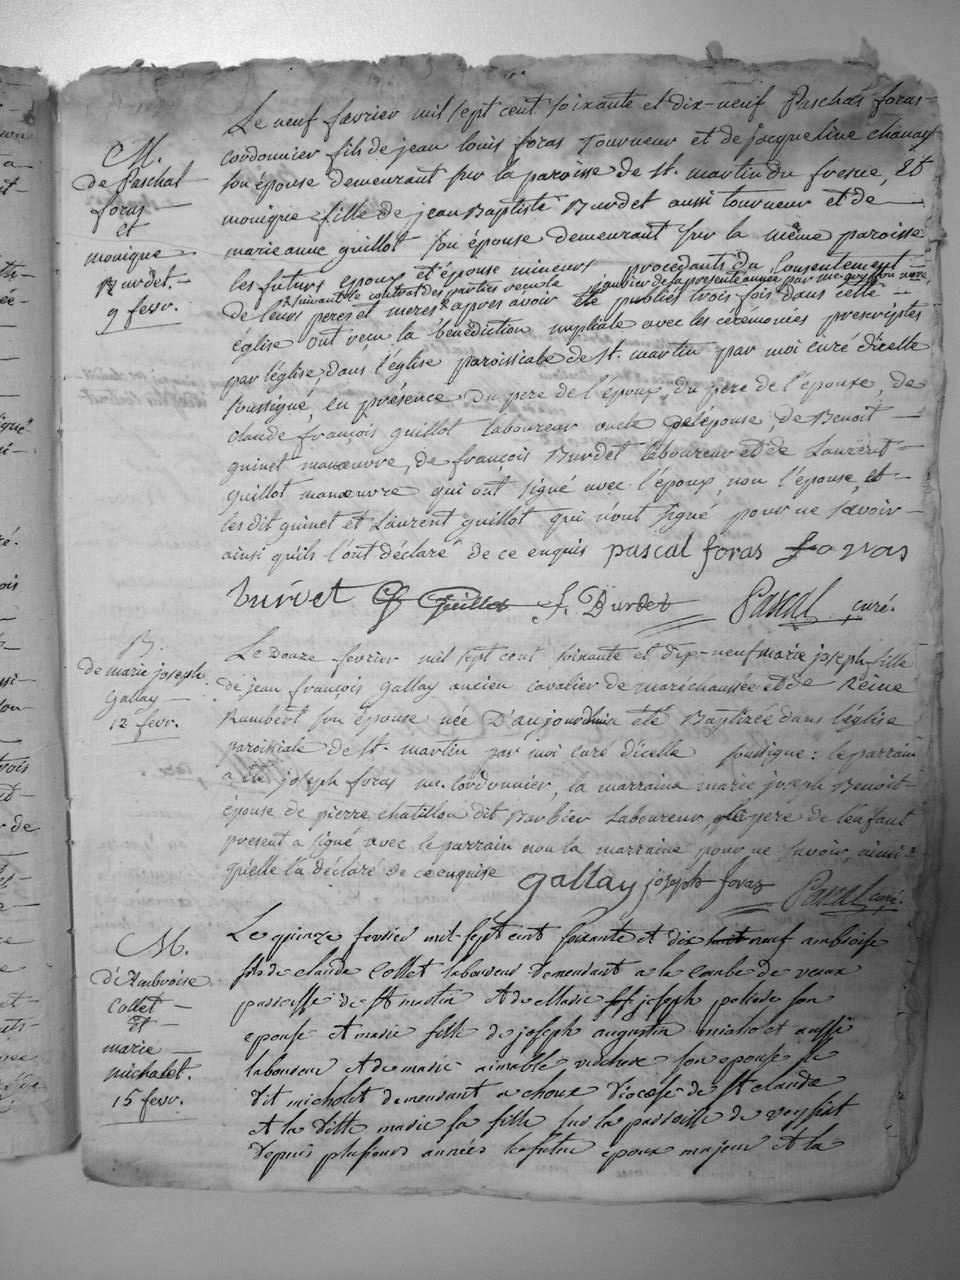 M.
de Paschal
foras
et
monique
Burdet.
9 fevr.
Le neuf fevrier mil sept cent soixante et dix-neuf Paschal foras
cordonnier fils de jean louis foras Tourneur et de jacqueline chanay
son épouse demeurant sur la paroisse de st. martin du fresne, et
monique fille de jean Baptiste Burdet aussi tourneur et de
marie anne guillot son épouse demeurant sur la même paroisse
les futurs epoux et épouse mineurs procedants du consentement
suivant le contrat des parties recu le janvier de la presente année par me notaire,
de leurs peres et meres apres avoir été publiés trois fois dans cette
eglise ont reçu la benediction nuptiale avec les cérémonies prescriptes
par l'église, dans l'église paroissiale de st. martin par moi curé d'icelle
soussigné, en présence du pere de l'époux, du pere de l'épouse, de
claude françois guillot laboureur oncle de l'épouse, de Benoit
guinet manœuvre, de françois Burdet laboureur et de Laurent
guillot manœuvre qui ont signé avec l'époux, non l'épouse, et
les dit guinet et Laurent guillot qui n'ont signé pour ne savoir
ainsi qu'ils l'ont déclaré de ce enquis pascal foras
burdet guillot f. Burdet Pascal curé.
B.
de marie joseph
Gallay
12 fevr.
Le Douze fevrier mil sept cent soixante et dix-neuf marie joseph fille
de jean françois gallay ancien cavalier de maréchaussée et de Reine
Rambert son épouse née D'aujourdhui a été Baptizée dans l'église
paroissiale de st. martin par moi curé d'icelle soussigné: le parrain
a été joseph foras me. cordonnier, la marraine marie joseph Benoit
epouse de pierre chatillon dit Barbier Laboureur le pere de l'enfant
present a signé avec le parrain non la marraine pour ne savoir, ainsi
qu'elle l'a déclaré de ce enquise gallay joseph foras Pascal curé.
M.
d'Ambroise
Collet
et
marie
michalet.
15 fevr.
Le quinze fevrier mil sept cent soixante et dix neuf ambroise
fils de claude Collet laboureur demeurant a la Combe de
paroisse de St martin et de Marie joseph son
epouse et marie fille de joseph augustin michalet aussi
laboureur et de marie aimable son epouse le
dit michalet demeurant a choux diocese de st claude
et la ditte marie sa fille sur la paroisse de
depuis plusieurs années le futur epoux majeur et la